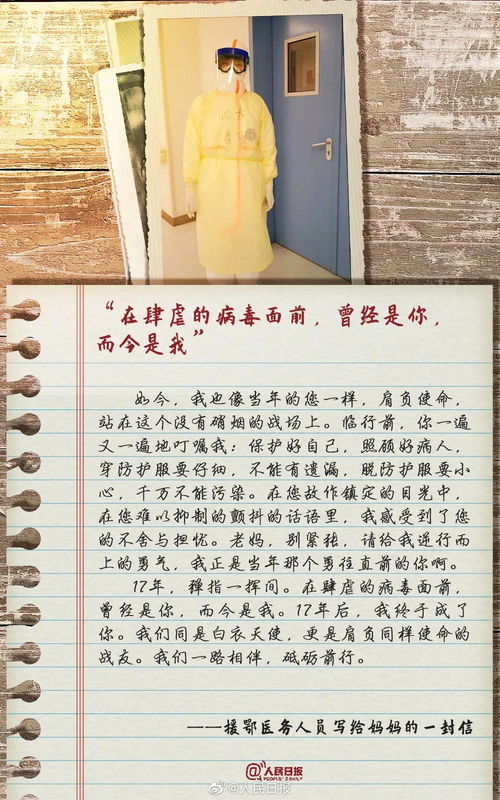 北大
“在肆虐的病毒面前，曾经是你，
而今是我”
如今，我也像当年的您一样，肩负使命，
站在这个没有硝烟的战场上。临行前，你一遍
又一遍地叮嘱我：保护好自己，照顾好病人，
穿防护服要仔细，不能有遗漏，脱防护服要小
心，千万不能污染。在您故作镇定的目光中，
在您难以抑制的颤抖的话语里，我感受到了您
的不舍与担忧。老妈，别紧张，请给我逆行而
上的勇气，我正是当年那个勇往直前的你啊。
17年，弹指一挥间。在肆虐的病毒面前，
曾经是你，而今是我。17年后，我终于成了
你。我们同是白衣天使，更是肩负同样使命的
战友。我们一路相伴，砥砺前行。
——援鄂医务人员写给妈妈的一封信
@人民日报
PEOPLE'S DAILY
@人民日报